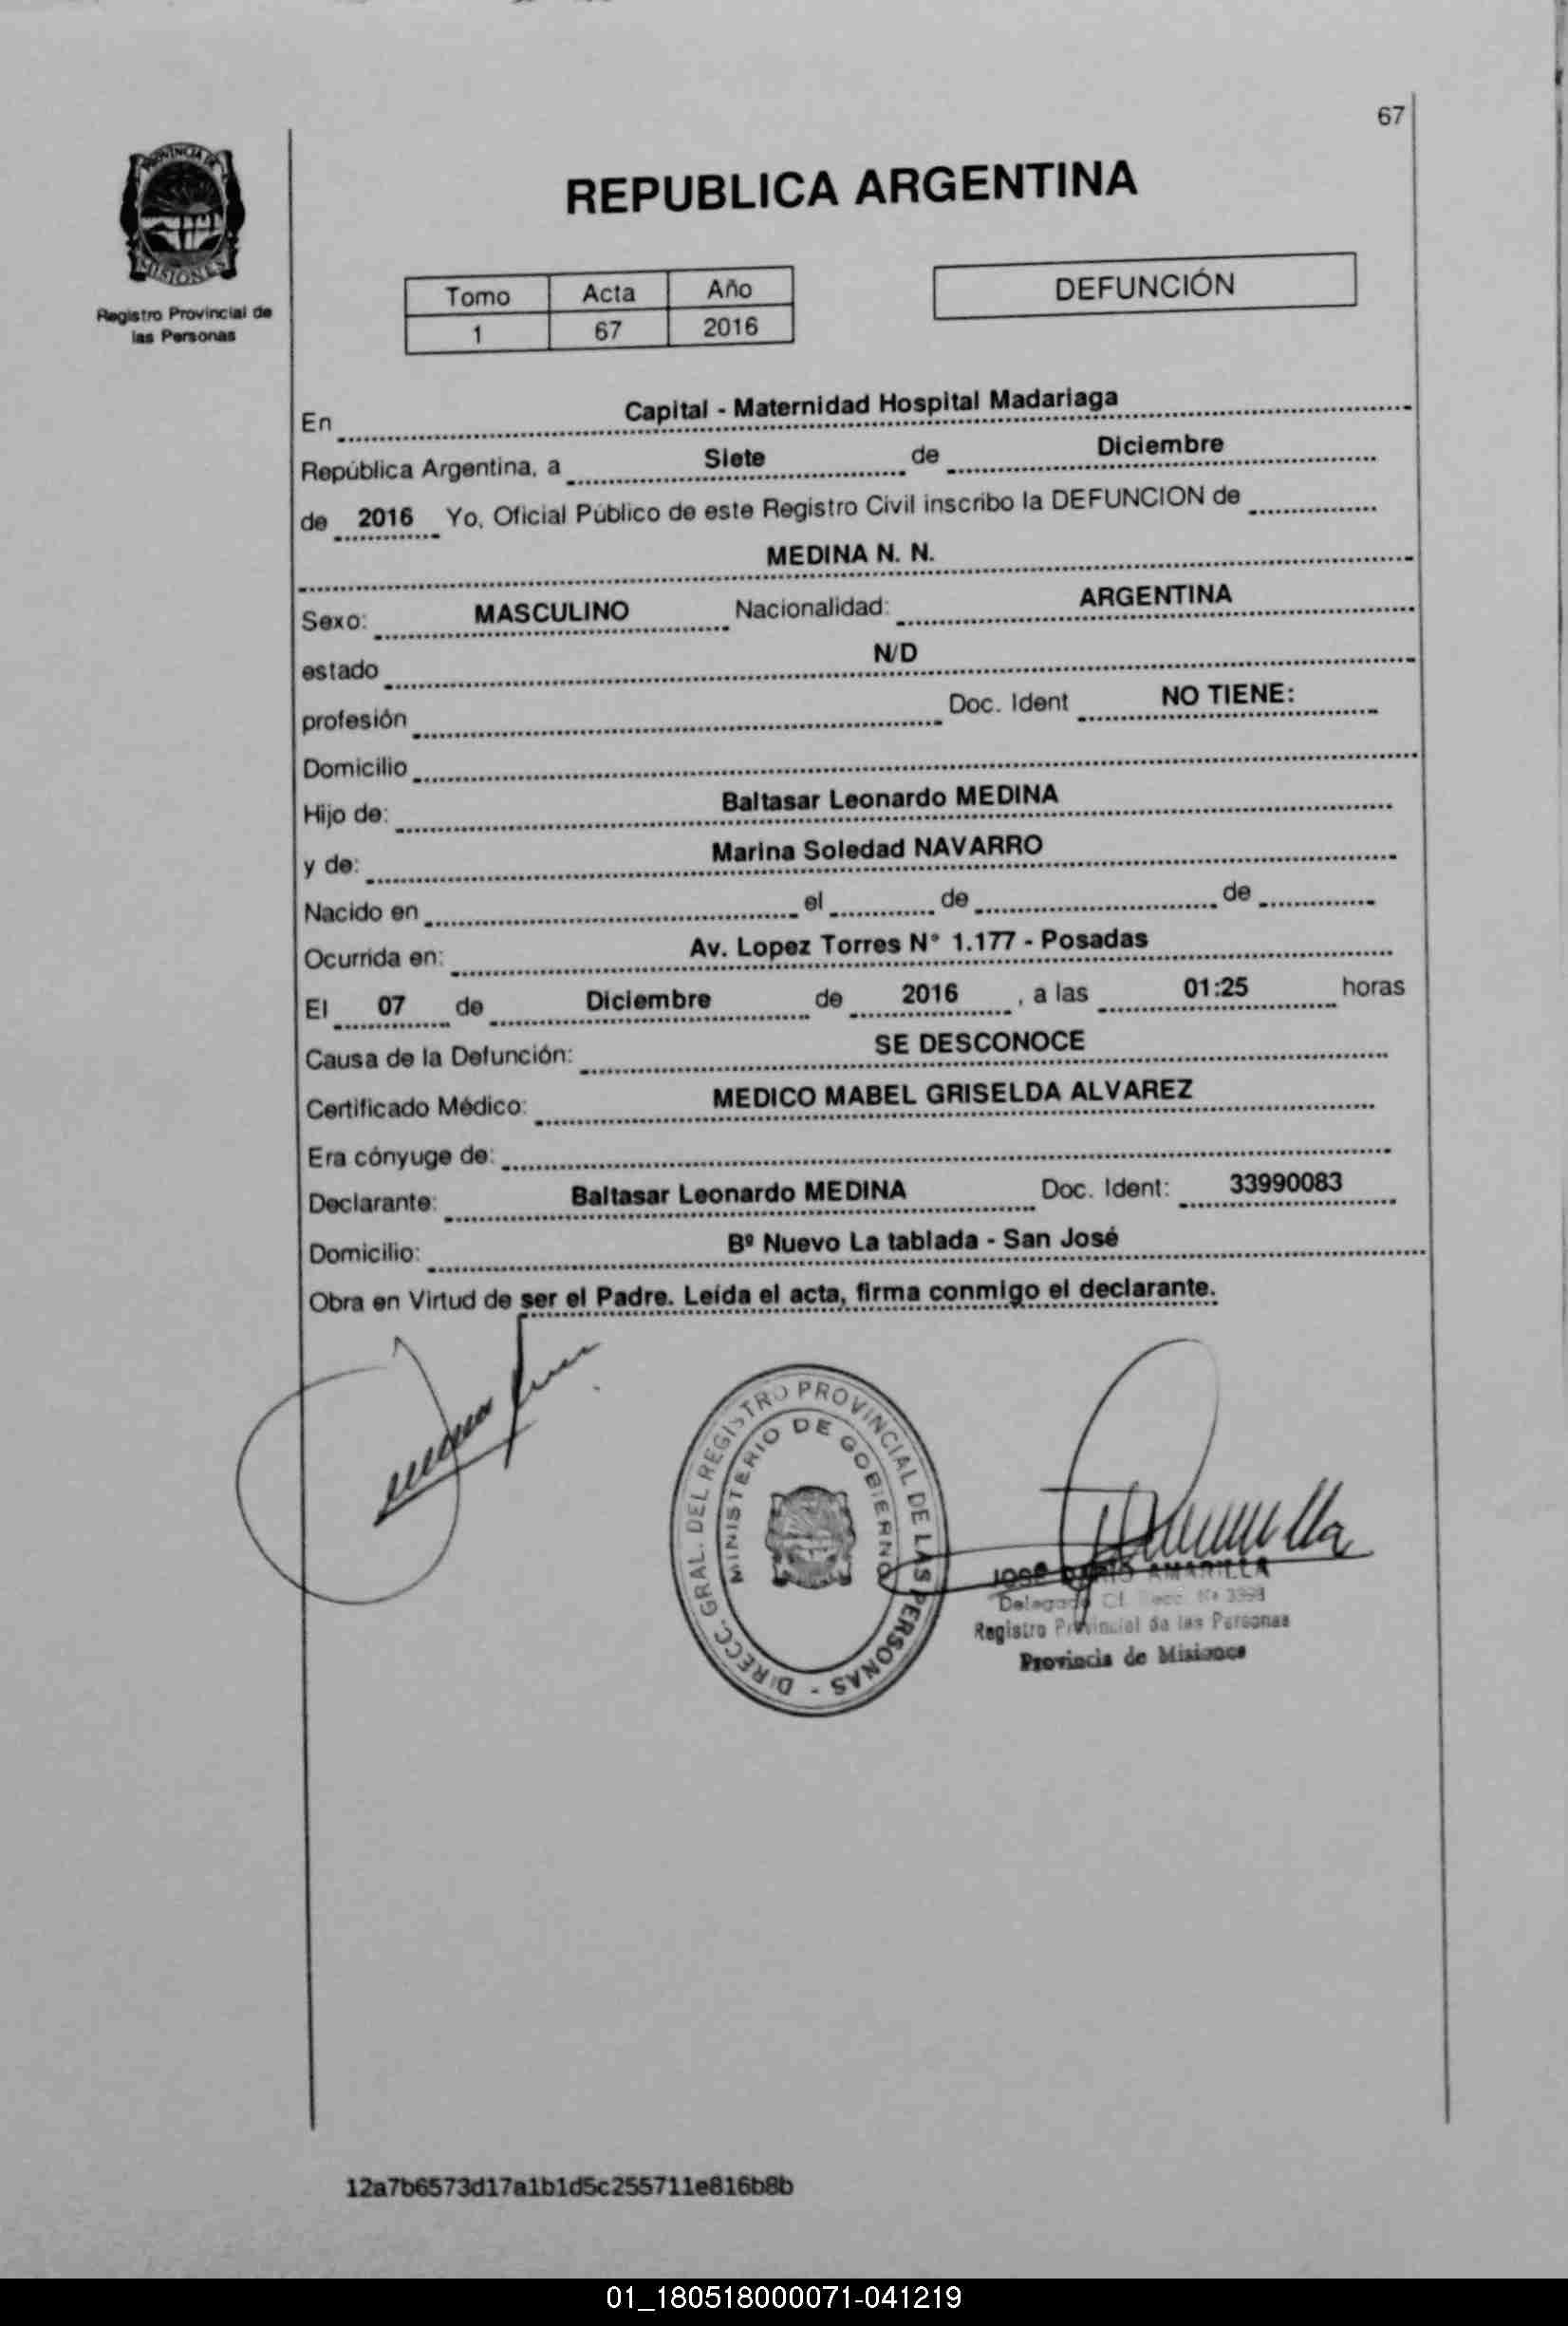 67
PROVINCIA DE
MISIONES
Registro Provincial de
las Personas
REPUBLICA ARGENTINA
Tomo Acta Año
1 67 2016
DEFUNCIÓN
En Capital - Maternidad Hospital Madariaga
República Argentina, a Siete de Diciembre
de 2016 Yo, Oficial Público de este Registro Civil inscribo la DEFUNCION de
MEDINA N. N.
Sexo: MASCULINO Nacionalidad: ARGENTINA
estado N/D
profesión Doc. Ident NO TIENE:
Domicilio
Hijo de: Baltasar Leonardo MEDINA
y de: Marina Soledad NAVARRO
Nacido en el de de
Ocurrida en: Av. Lopez Torres N° 1.177 - Posadas
El 07 de Diciembre de 2016 , a las 01:25 horas
Causa de la Defunción: SE DESCONOCE
Certificado Médico: MEDICO MABEL GRISELDA ALVAREZ
Era cónyuge de:
Declarante: Baltasar Leonardo MEDINA Doc. Ident: 33990083
Domicilio: Bº Nuevo La tablada - San José
Obra en Virtud de ser el Padre. Leída el acta, firma conmigo el declarante.
DIRECC. GRAL. DEL REGISTRO PROVINCIAL DE LAS PERSONAS -
MINISTERIO DE GOBIERNO
JOSE DARIO AMARILLA
Delegado
Registro Provincial de las Personas
Provincia de Misiones
12a7b6573d17a1b1d5c255711e816b8b
01_180518000071-041219